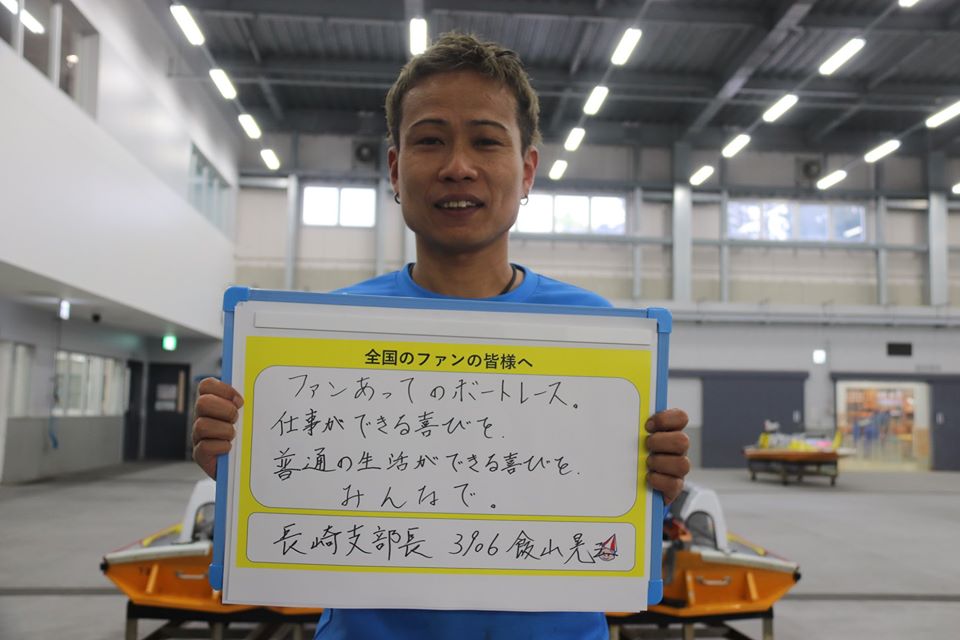 全国のファンの皆様へ
ファンあってのボートレース。
仕事ができる喜びを.
普通の生活ができる喜びを.
みんなで。
長崎支部長 3906 飯山晃三